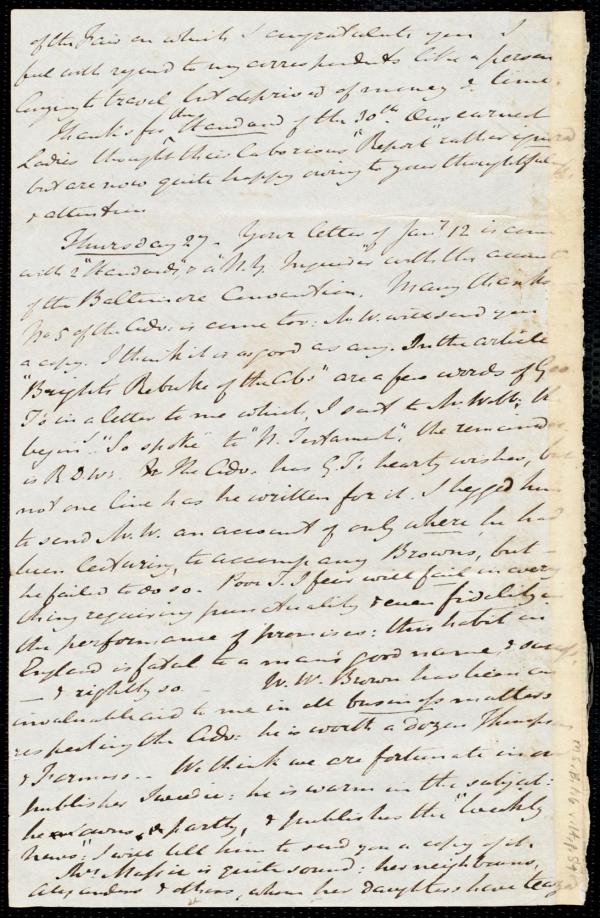 of the Fair on which I congratulate you. I
feel with regard to my correspondents like a person
longing to travel but deprived of money & time.
Thanks for the Standard of the 30th. Our earnest
Ladies thought their laborious "Report" rather ignored
but are now quite happy owing to your thoughtfulness
& attention
Thursday 27. Your letter of Jany 12 is come
with 2 "Standards", & a "N.Y. Inquirer" with the account
of the Baltimore Convention. Many thanks
No 5 of the Adv. is come too: Mr W. will send you
a copy. I think it is as good as any. In the article
"Bright's Rebuke of the Abs" are a few words of Geo
T's in a letter to me which I sent to Mr Webb. It
begins "So spoke" to "N. Testament", the remainder
is R.D.W's. The Adv. has G.T's hearty wishes, but
not one line has he written for it. I begged him
to send Mr. W. an account of only where he had
been lecturing, to accompany Browns, but
he failed to do so. Poor T. I fear will fail in every
thing requiring punctuality & even fidelity in
the performance of promises: this habit in
England is fatal to a man's good name, &
— & rightly so. — W. W. Brown has been an
invaluable aid to me in all business matters
respecting the Adv: he is worth a dozen Thompsons
& Farmers — We think we are fortunate in our
publisher Tweedie: he is warm in the subject:
he owns, partly, & publishes the "Weekly
News": I will tell him to send you a copy of it.
Mrs Massie is quite sound: her neighbours,
Alexanders & others, whom her daughters have
Ms.B.1.6 v.14, p.59